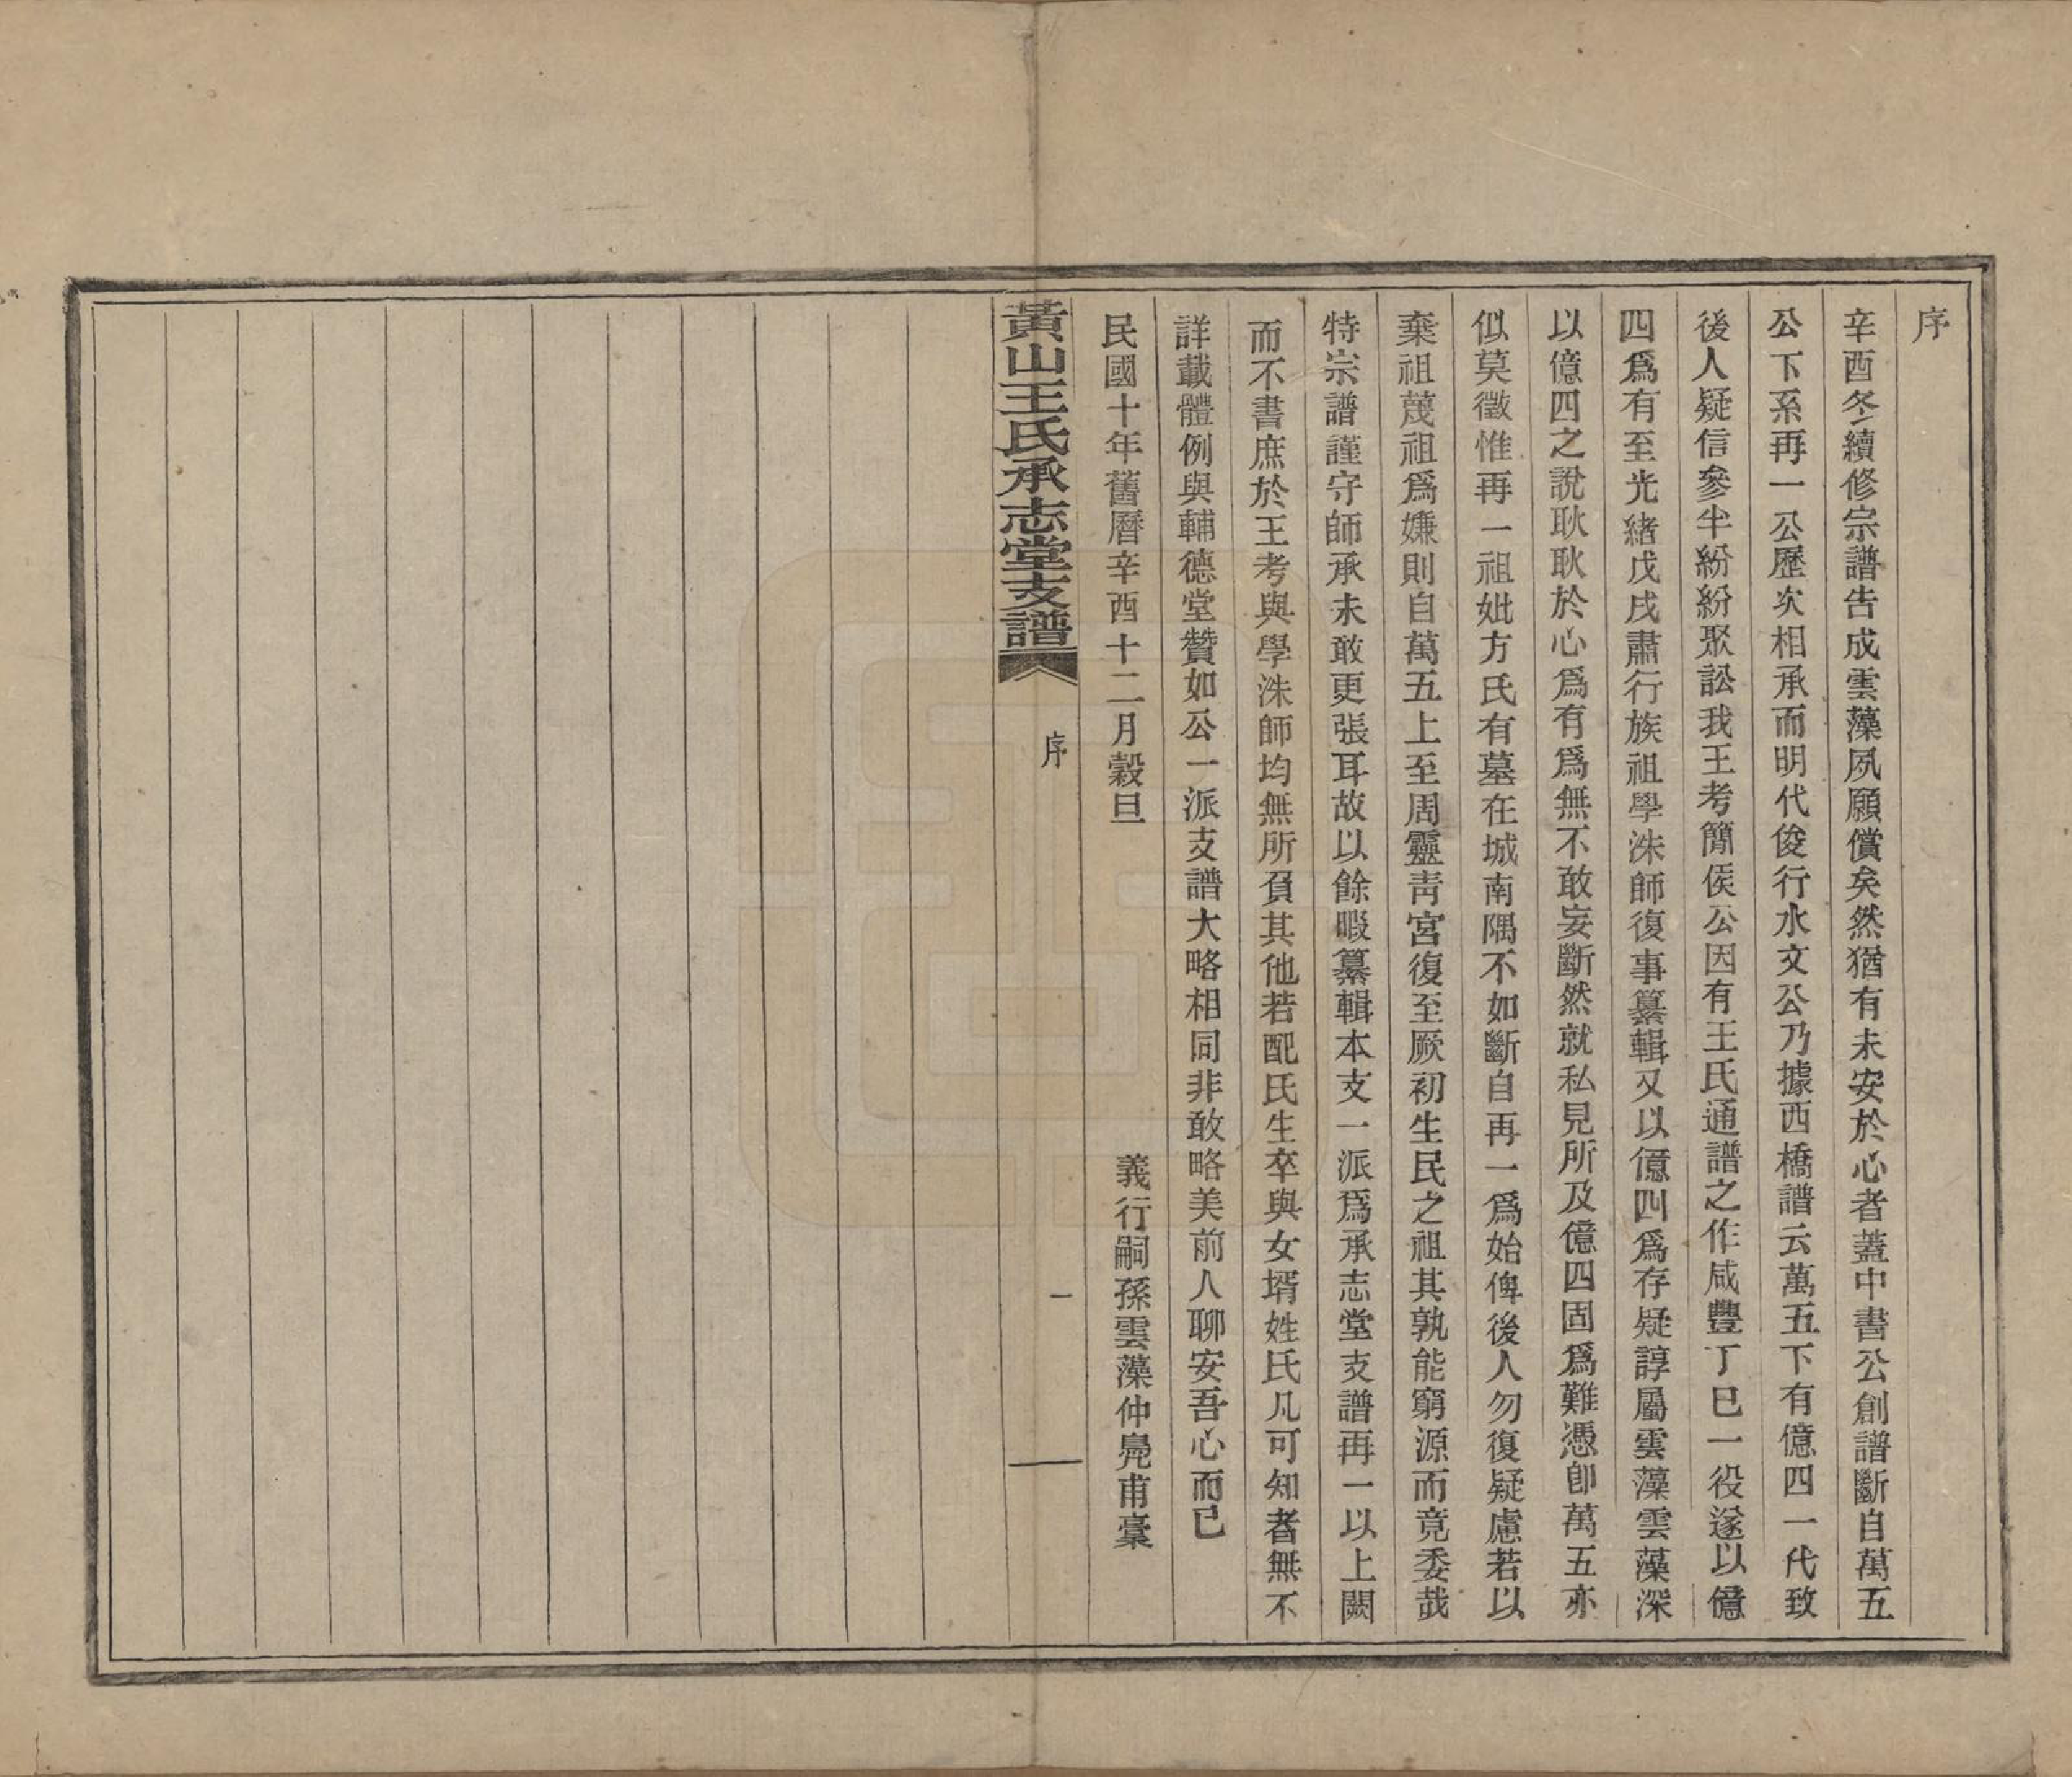 序
辛酉冬續修宗譜告成雲藻夙願償矣然猶有未安於心者蓋中書公創譜斷自萬五
公下系再一公歷次相承而明代俊行水文公乃據西橋譜云萬五下有億四一代致
後人疑信參半紛紛聚訟我王考簡侯公因有王氏通譜之作咸豐丁巳一役遂以億
四爲有至光緒戊戌肅行族祖學洙師復事纂輯又以億四爲存疑諄屬雲藻雲藻深
以億四之說耿耿於心爲有爲無不敢妄斷然就私見所及億四固爲難憑卽萬五亦
似莫徵惟再一祖妣方氏有墓在城南隅不如斷自再一爲始俾後人勿復疑慮若以
棄祖蔑祖爲嫌則自萬五上至周靈靑宮復至厥初生民之祖其孰能窮源而竟委哉
特宗譜謹守師承未敢更張耳故以餘暇纂輯本支一派爲承志堂支譜再一以上闕
而不書庶於王考與學洙師均無所負其他若配氏生卒與女壻姓氏凡可知者無不
詳載體例與輔德堂贊如公一派支譜大略相同非敢略美前人聊安吾心而已
民國十年舊曆辛酉十二月穀旦
義行嗣孫雲藻仲鳧甫稾
黃山王氏承志堂支譜
序
一